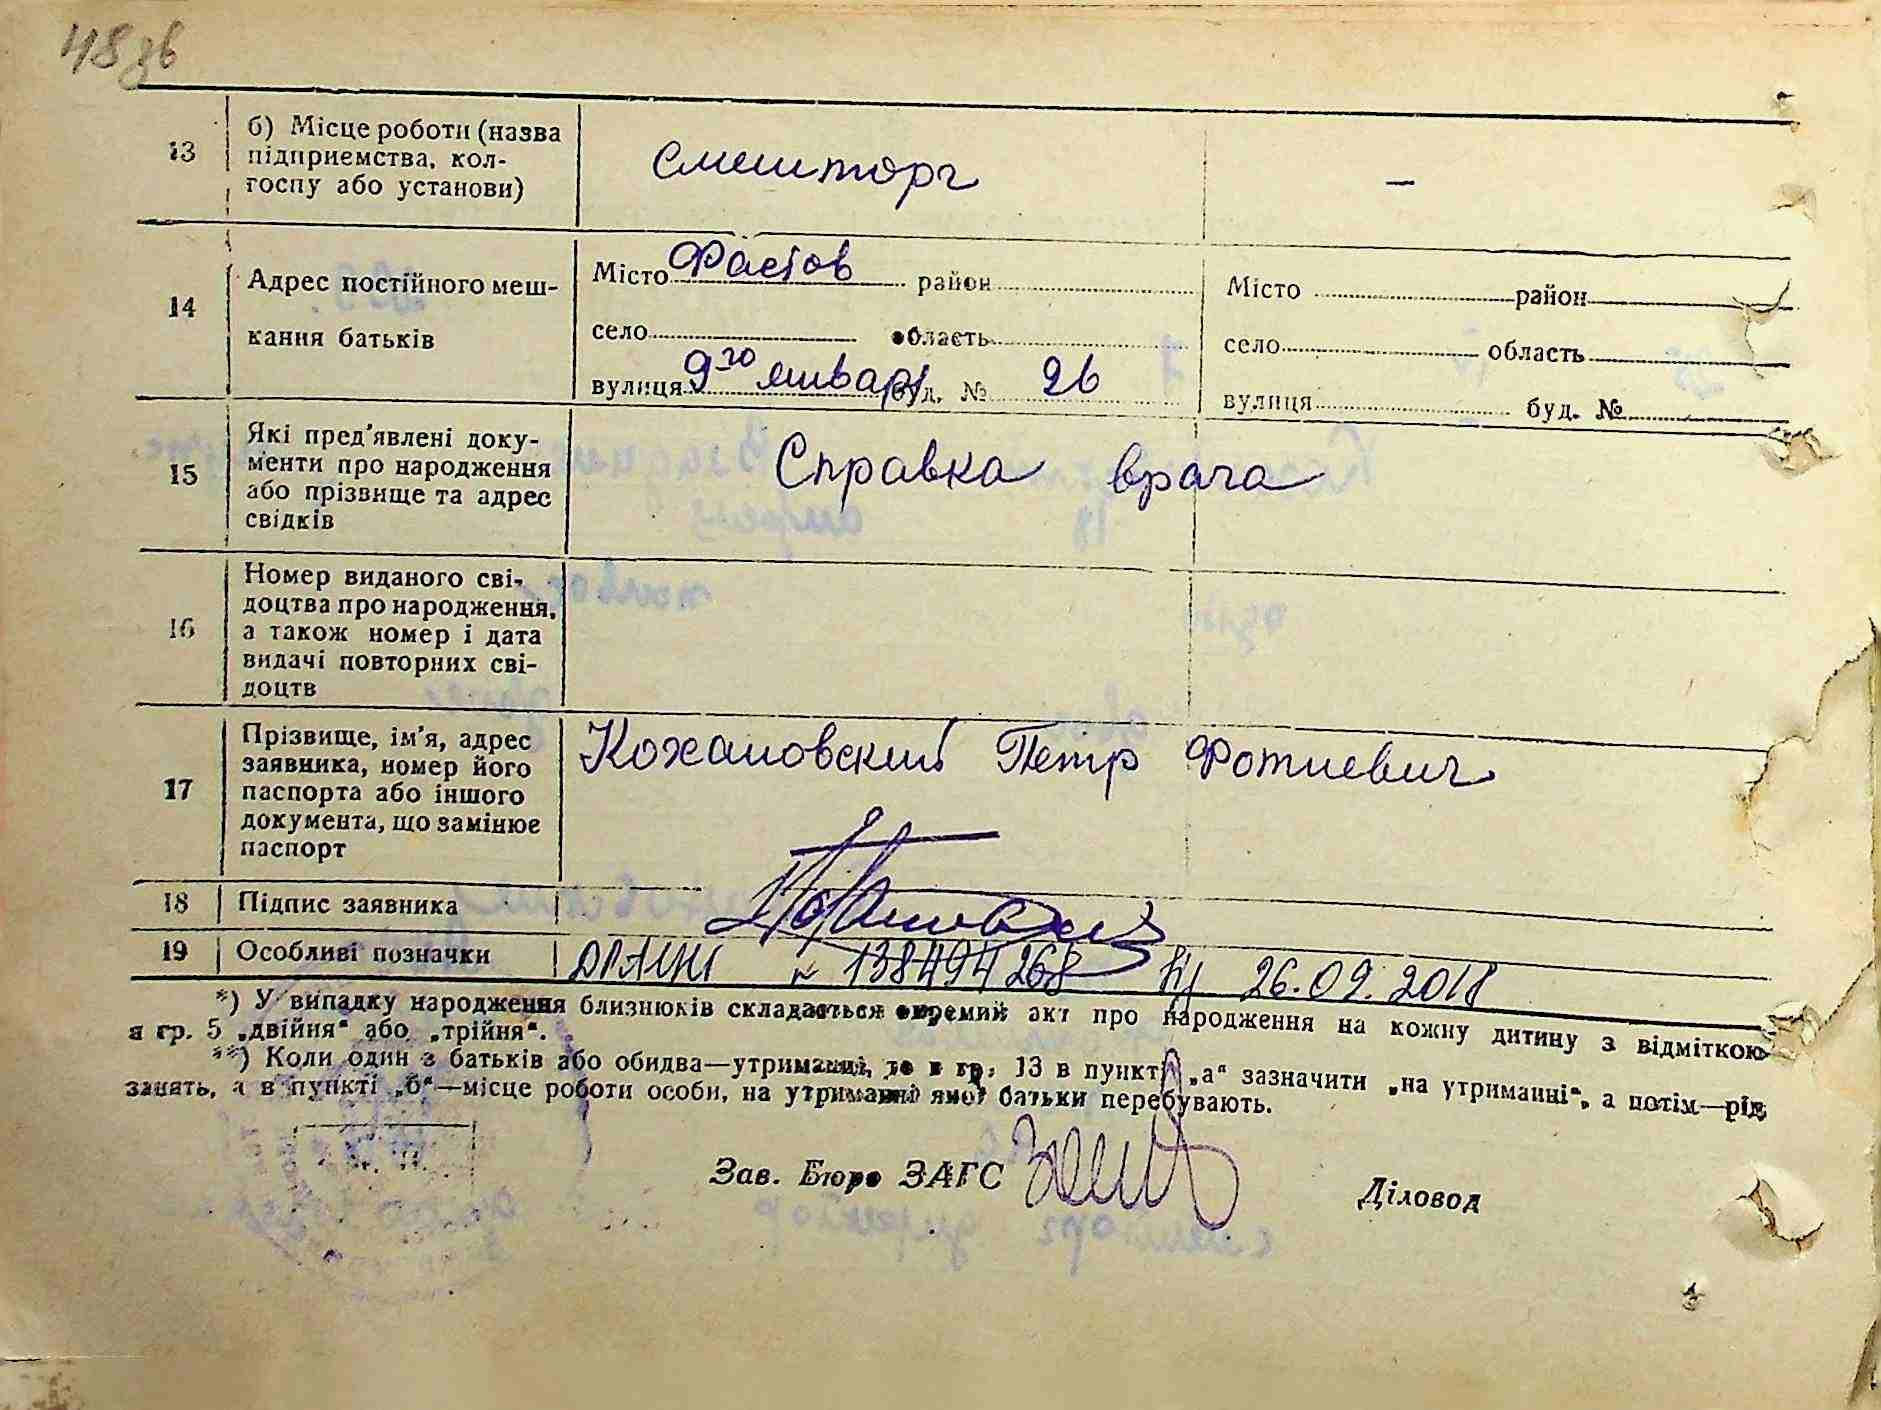 48 зв
13 б) Місце роботи (назва
підприємства, кол-
госпу або установи)
Смешторг
—
14 Адрес постійного меш-
кання батьків
Місто Фастов район
село область
вулиця 9го января буд. № 26
Місто район
село область
вулиця буд. №
15 Які пред'явлені доку-
менти про народження
або прізвище та адрес
свідків
Справка врача
16 Номер виданого сві-
доцтва про народження,
а також номер і дата
видачі повторних сві-
доцтв
17 Прізвище, ім'я, адрес
заявника, номер його
паспорта або іншого
документа, що замінює
паспорт
Кохановский Петр Фотиевич
18 Підпис заявника
19 Особливі позначки
№ 138494268 26.09.2018
*) У випадку народження близнюків складається окремий акт про народження на кожну дитину з відміткою
в гр. 5 „двійня“ або „трійня“.
**) Коли один з батьків або обидва—утриманці, то в гр. 13 в пункті „а“ зазначити „на утриманні“, а потім—рід
занять, а в пункті „б“—місце роботи особи, на утриманні якої батьки перебувають.
Зав. Бюро ЗАГС
Діловод